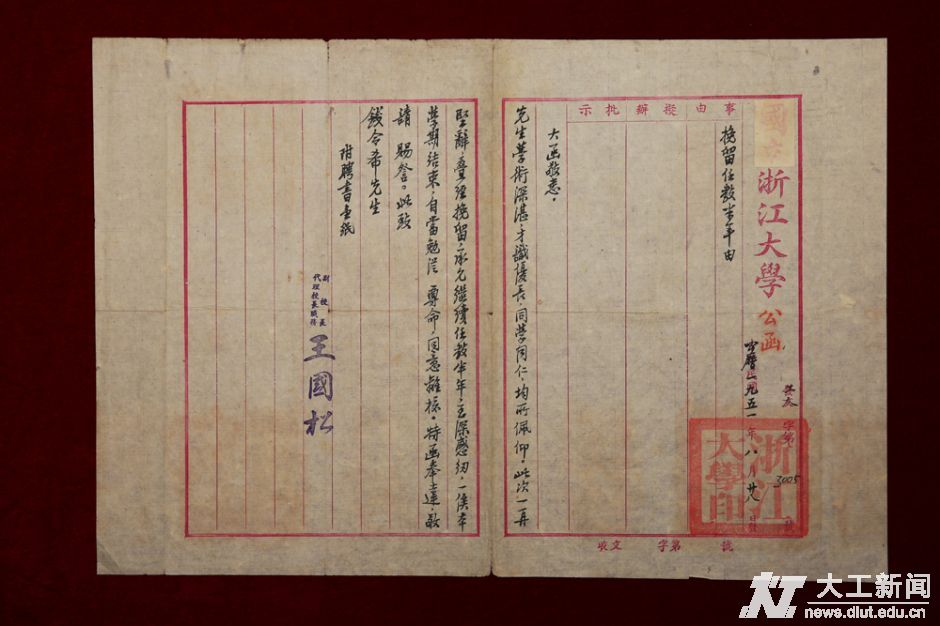 國立
浙江大學公函
公曆一九五一年八月廿八日
字第3005號
浙江
大學印
事由擬辦批示
挽留任教半年由
大函敬悉。
先生學術深湛，才識優長，同學同仁，均所佩仰。此次一再
堅辭，疊經挽留，承允繼續任教半年，至深感紉，一俟本
學期結束，自當勉從 尊命，同意離校。特函奉達，敬
請 賜詧。此致
錢令希先生
附聘書壹紙
副校長
代理校長職務
王國松
收文 字第 號
大工新闻
news.dlut.edu.cn